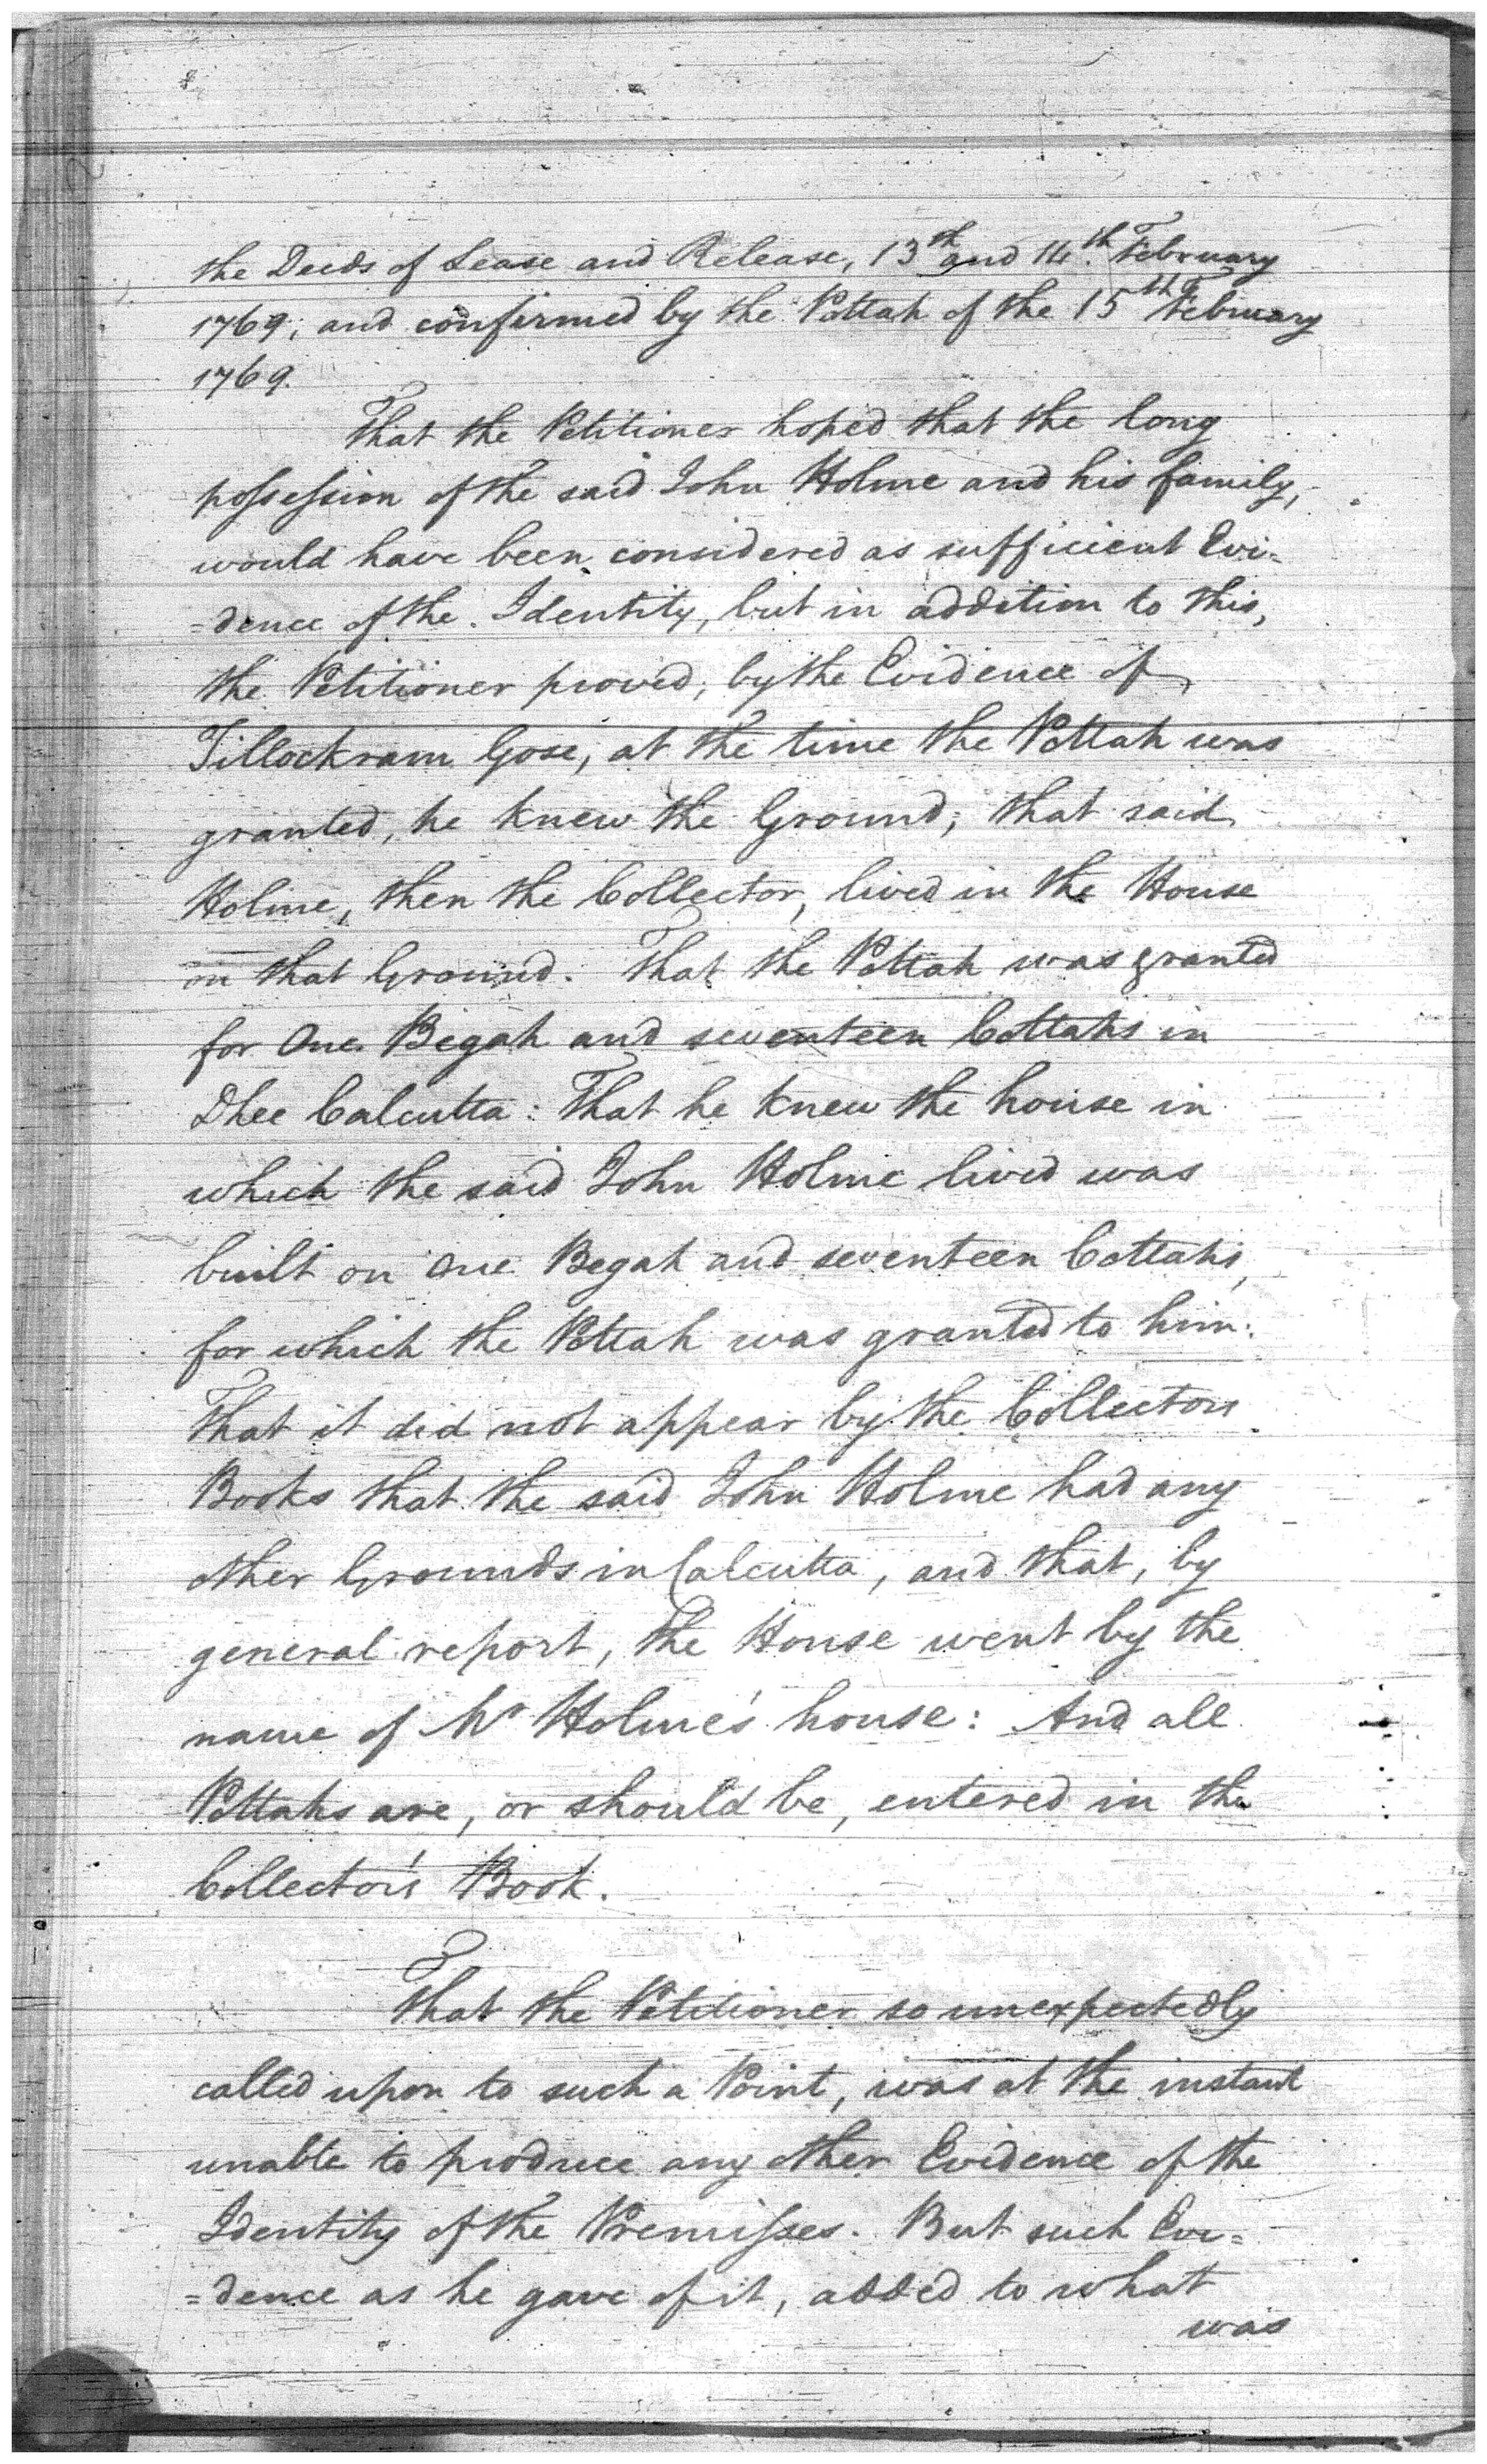 the Deeds of Lease and Release, 13th and 14th February
1769; and confirmed by the Pottah of the 15th February
1769.
That the Petitioner hoped that the long
possession of the said John Holme and his family,
would have been considered as sufficient Evi-
=dence of the Identity, but in addition to this,
the Petitioner proved, by the Evidence of
Tillockram Gose, at the time the Pottah was
granted, he knew the Ground; that said
Holme, then the Collector, lived in the House
on that Ground. That the Pottah was granted
for One Begah and seventeen Cottahs in
Dhee Calcutta: That he knew the house in
which the said John Holme lived was
built on One Begah and seventeen Cottahs,
for which the Pottah was granted to him:
That it did not appear by the Collectors
Books that the said John Holme had any
other Grounds in Calcutta, and that, by
general report, The House went by the
name of Mr Holme's house: And all
Pottahs are, or should be, entered in the
Collector's Book.
That the Petitioner so unexpectedly
called upon to such a Point, was at the instant
unable to produce any other Evidence of the
Identity of the Premisses. But such Evi=
=dence as he gave of it, added to what
was